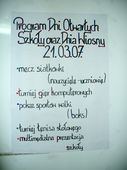 Program Dni Otwartych
Szkoły oraz Dnia Wiosny
21.03.07.
-mecz siatkówki
(nauczyciele-uczniowie)
-turniej gier komputerowych
-pokaz sportów walki
(boks)
-turniej tenisa stołowego
-multimedialna prezentacja
szkoły